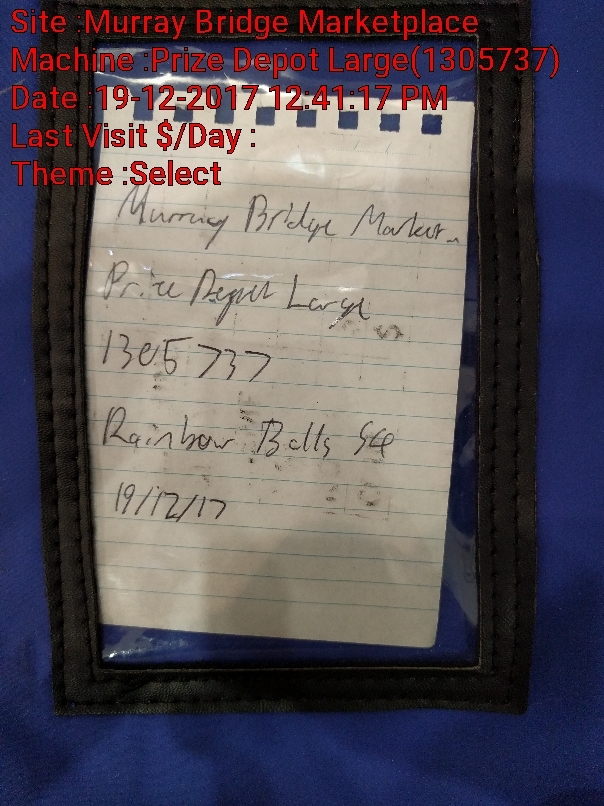 Site :Murray Bridge Marketplace
Machine :Prize Depot Large(1305737)
Date :19-12-2017 12:41:17 PM
Last Visit $/Day :
Theme :Select
Murray Bridge Market
Prize Depot Large
1305737
Rainbow Balls
19/12/17